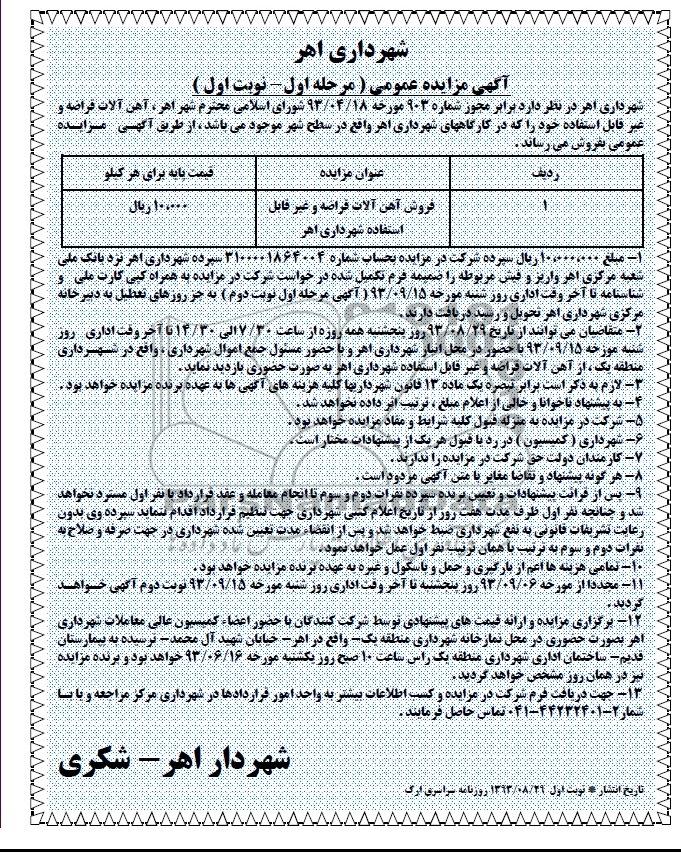 شهرداری اهر
آگهی مزایده عمومی ( مرحله اول – نوبت اول )
شهرداری اهر در نظر دارد برابر مجوز شماره ۹۰۳ مورخه ۹۳/۰۴/۱۸ شورای اسلامی محترم شهر اهر ، آهن آلات قراضه و
غیر قابل استفاده خود را که در کارگاههای شهرداری اهر واقع در سطح شهر موجود می باشد ، از طریق آگهی مزایده
عمومی بفروش می رساند .
ردیف عنوان مزایده قیمت پایه برای هر کیلو
۱ فروش آهن آلات قراضه و غیر قابل ۱۰،۰۰۰ ریال
استفاده شهرداری اهر
۱- مبلغ ۱۰،۰۰۰،۰۰۰ ریال سپرده شرکت در مزایده بحساب شماره ۳۱۰۰۰۰۱۸۶۴۰۰۴ سپرده شهرداری اهر نزد بانک ملی
شعبه مرکزی اهر واریز و فیش مربوطه را ضمیمه فرم تکمیل شده درخواست شرکت در مزایده به همراه کپی کارت ملی و
شناسنامه تا آخر وقت اداری روز شنبه مورخه ۹۳/۰۹/۱۵ ( آگهی مرحله اول نوبت دوم ) به جز روزهای تعطیل به دبیرخانه
مرکزی شهرداری اهر تحویل و رسید دریافت دارند .
۲- متقاضیان می توانند از تاریخ ۹۳/۰۸/۲۹ روز پنجشنبه همه روزه از ساعت ۷/۳۰ الی ۱۴/۳۰ تا آخر وقت اداری روز
شنبه مورخه ۹۳/۰۹/۱۵ با حضور در محل انبار شهرداری اهر و با حضور مسئول جمع اموال شهرداری ، واقع در شهرداری
منطقه یک ، از آهن آلات قراضه و غیر قابل استفاده شهرداری اهر به صورت حضوری بازدید نماید .
۳- لازم به ذکر است برابر تبصره یک ماده ۱۳ قانون شهرداریها کلیه هزینه های آگهی ها به عهده برنده مزایده خواهد بود .
۴- به پیشنهاد ناخوانا و خالی از اعلام مبلغ ، ترتیب اثر داده نخواهد شد .
۵- شرکت در مزایده به منزله قبول کلیه شرایط و مفاد مزایده خواهد بود .
۶- شهرداری ( کمیسیون ) در رد یا قبول هر یک از پیشنهادات مختار است .
۷- کارمندان دولت حق شرکت در مزایده را ندارند .
۸- هر گونه پیشنهاد و تقاضا مغایر با متن آگهی مردود است .
۹- پس از قرائت پیشنهادات و تعیین برنده سپرده نفرات دوم و سوم تا انجام معامله و عقد قرارداد با نفر اول مسترد نخواهد
شد و چنانچه نفر اول ظرف مدت هفت روز از تاریخ اعلام کتبی شهرداری جهت تنظیم قرارداد اقدام ننماید سپرده وی بدون
رعایت تشریفات قانونی به نفع شهرداری ضبط خواهد شد و پس از انقضاء مدت تعیین شده شهرداری در جهت صرفه و صلاح به
نفرات دوم و سوم به ترتیب با همان ترتیب نفر اول عمل خواهد نمود .
۱۰- تمامی هزینه ها اعم از بارگیری و حمل و باسکول و غیره به عهده برنده مزایده خواهد بود .
۱۱- مجددا از مورخه ۹۳/۰۹/۰۶ روز پنجشنبه تا آخر وقت اداری روز شنبه مورخه ۹۳/۰۹/۱۵ نوبت دوم آگهی خواهد
گردید .
۱۲- برگزاری مزایده و ارائه قیمت های پیشنهادی توسط شرکت کنندگان با حضور اعضاء کمیسیون عالی معاملات شهرداری
اهر بصورت حضوری در محل نمازخانه شهرداری منطقه یک- واقع در اهر- خیابان شهید آل محمد- نرسیده به بیمارستان
قدیم- ساختمان اداری شهرداری منطقه یک راس ساعت ۱۰ صبح روز یکشنبه مورخه ۹۳/۰۶/۱۶ خواهد بود و برنده مزایده
نیز در همان روز مشخص خواهد گردید .
۱۳- جهت دریافت فرم شرکت در مزایده و کسب اطلاعات بیشتر به واحد امور قراردادها در شهرداری مرکز مراجعه و یا با
شمار ۲-۰۴۱-۴۴۲۳۲۴۰۱ تماس حاصل فرمایند .
شهردار اهر – شکری
تاریخ انتشار * نوبت اول ۱۳۹۳/۰۸/۲۹ روزنامه سراسری ارک